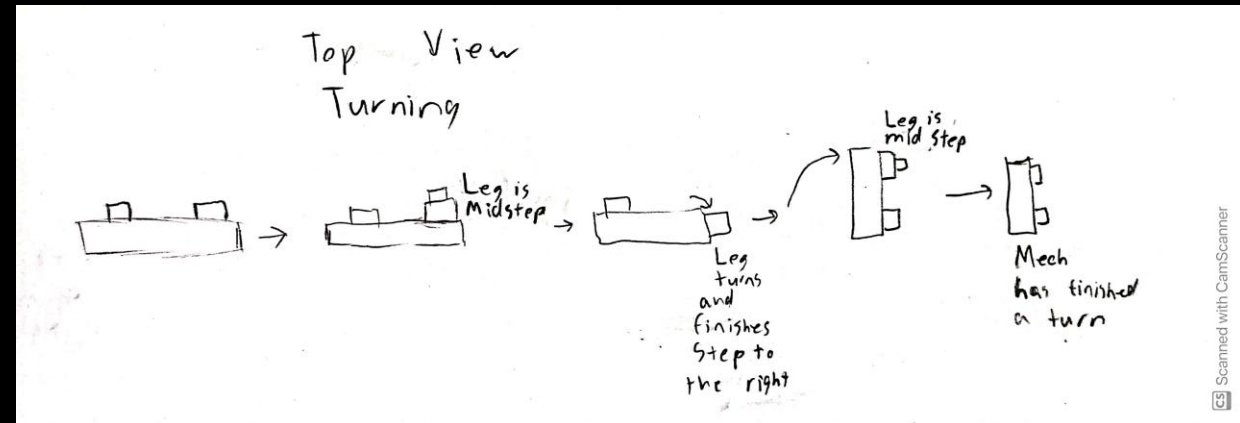 Top View
Turning
Leg is
Midstep
Leg
turns
and
finishes
Step to
the right
Leg is
mid step
Mech
has finished
a turn
CS Scanned with CamScanner